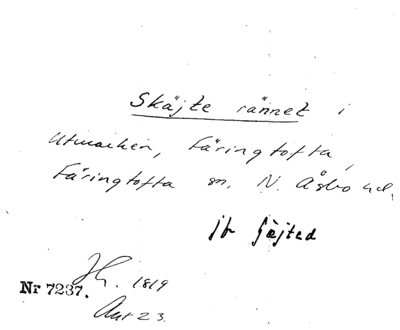 Skäjte rännet i
Utmarken, Färingtofta,
Färingtofta sn. N. Åsbo hd.
jb Gäjted
1819
Nr 7237.
23